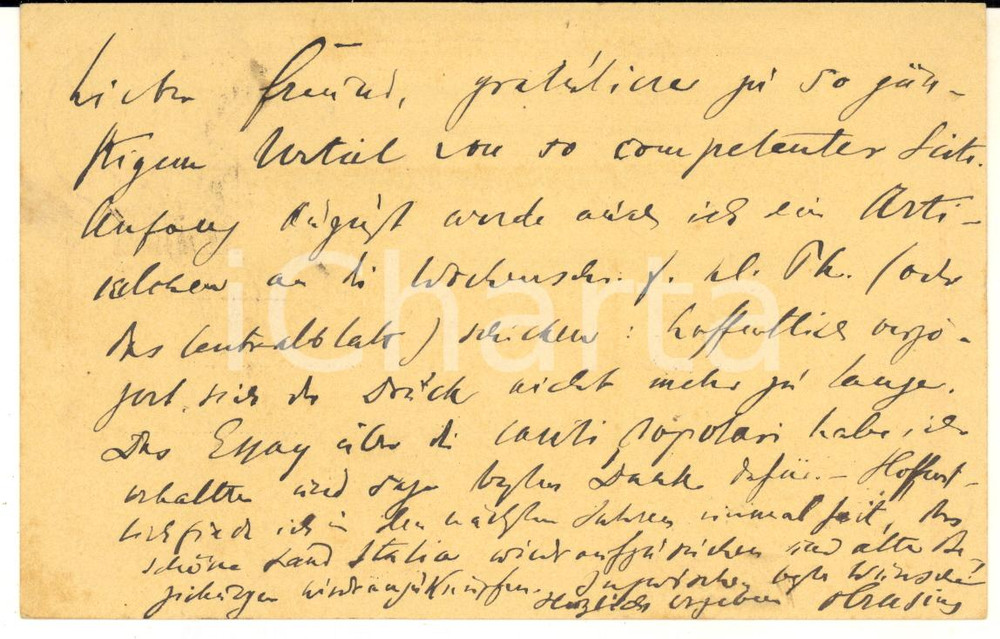 Lieber Freund, gratuliere zu so gün-
stigem Urteil von so competenter Seite.
Anfang August werde auch ich ein Arti-
kelchen an die Wochenschr. f. kl. Ph. (oder
das Centralblatt) schicken: hoffentlich verzö-
gert sich der Druck nicht mehr zu lange.
Das Essay über die canti popolari habe ich
erhalten und sage besten Dank dafür. – Hoffent-
lich finde ich in den nächsten Jahren einmal Zeit, das
schöne Land Italia wieder aufzusuchen und alte Be-
ziehungen wieder anzuknüpfen. Inzwischen beste Wünsche
Herzlichst ergebener
iCharta